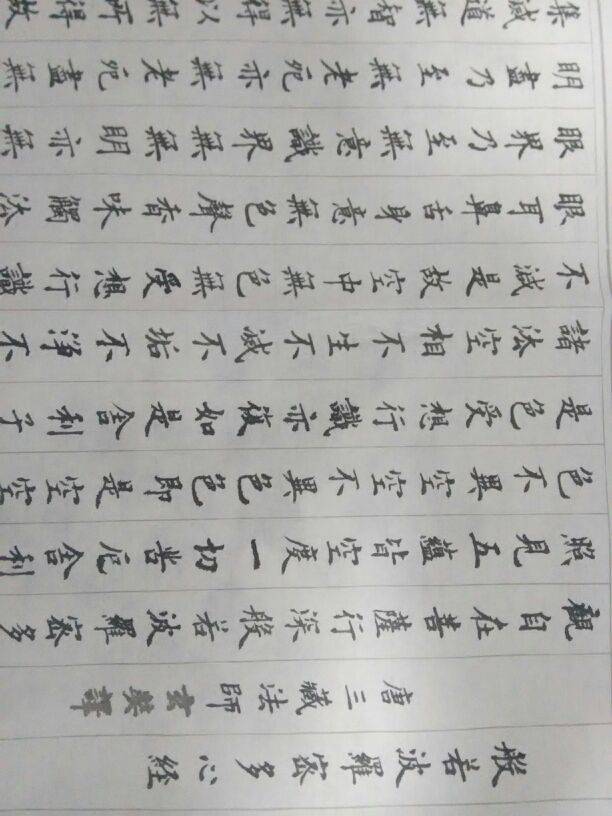 般若波羅蜜多心經
唐三藏法師玄奘譯
觀自在菩薩行深般若波羅蜜多
照見五蘊皆空度一切苦厄舍利
色不異空空不異色色即是空空
是色受想行識亦復如是舍利子
諸法空相不生不滅不垢不淨不
不滅是故空中無色無受想行識
眼耳鼻舌身意無色聲香味觸法
眼界乃至無意識界無無明亦無
明盡乃至無老死亦無老死盡無
集滅道無智亦無得以無所得故